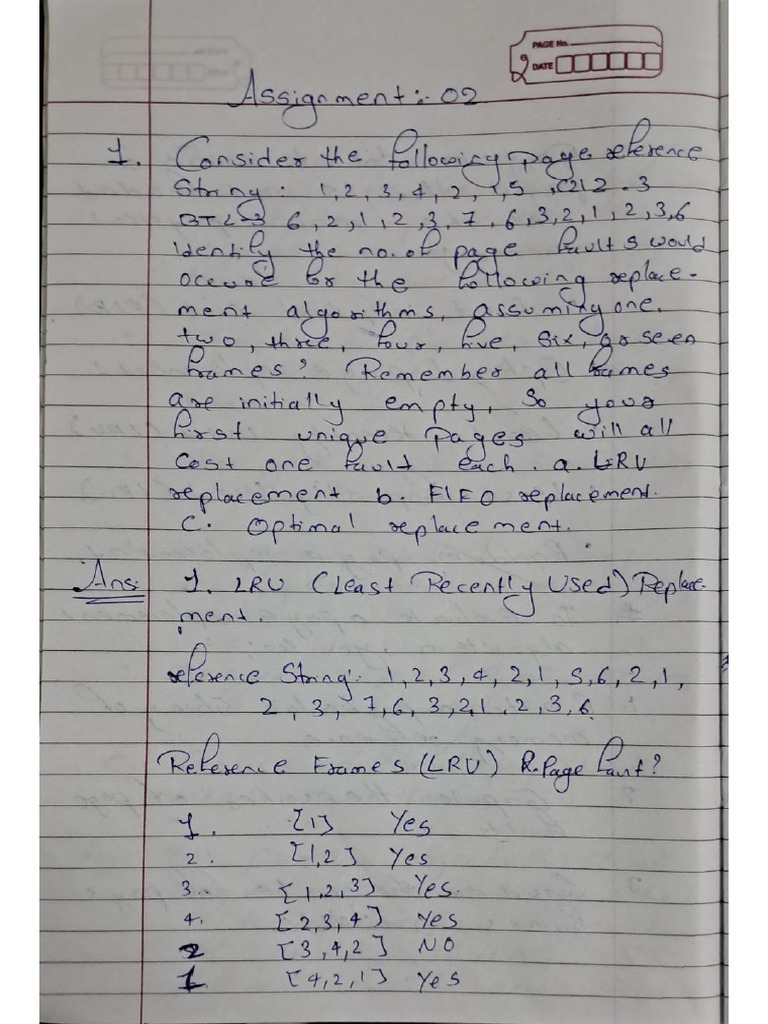 PAGE No.
DATE
Assignment:- 02
1. Consider the following page reference
String: 1, 2, 3, 4, 2, 1, 5,
6, 2, 1, 2, 3, 7, 6, 3, 2, 1, 2, 3, 6
Identify the no. of page faults would
occure for the following replace-
ment algorithms, assuming one,
two, three, four, five, six, or seven
frames? Remember all frames
are initially empty, so your
first unique pages will all
cost one fault each. a. LRU
replacement b. FIFO replacement.
c. Optimal replacement.
Ans: 1. LRU (Least Recently Used) Replace-
ment.
reference String: 1, 2, 3, 4, 2, 1, 5, 6, 2, 1,
2, 3, 7, 6, 3, 2, 1, 2, 3, 6.
Reference Frames (LRU) Page faut?
1. [1] Yes
2. [1,2] Yes
3.. [1,2,3] Yes.
4. [2,3,4] Yes
2 [3,4,2] NO
1 [4,2,1] Yes